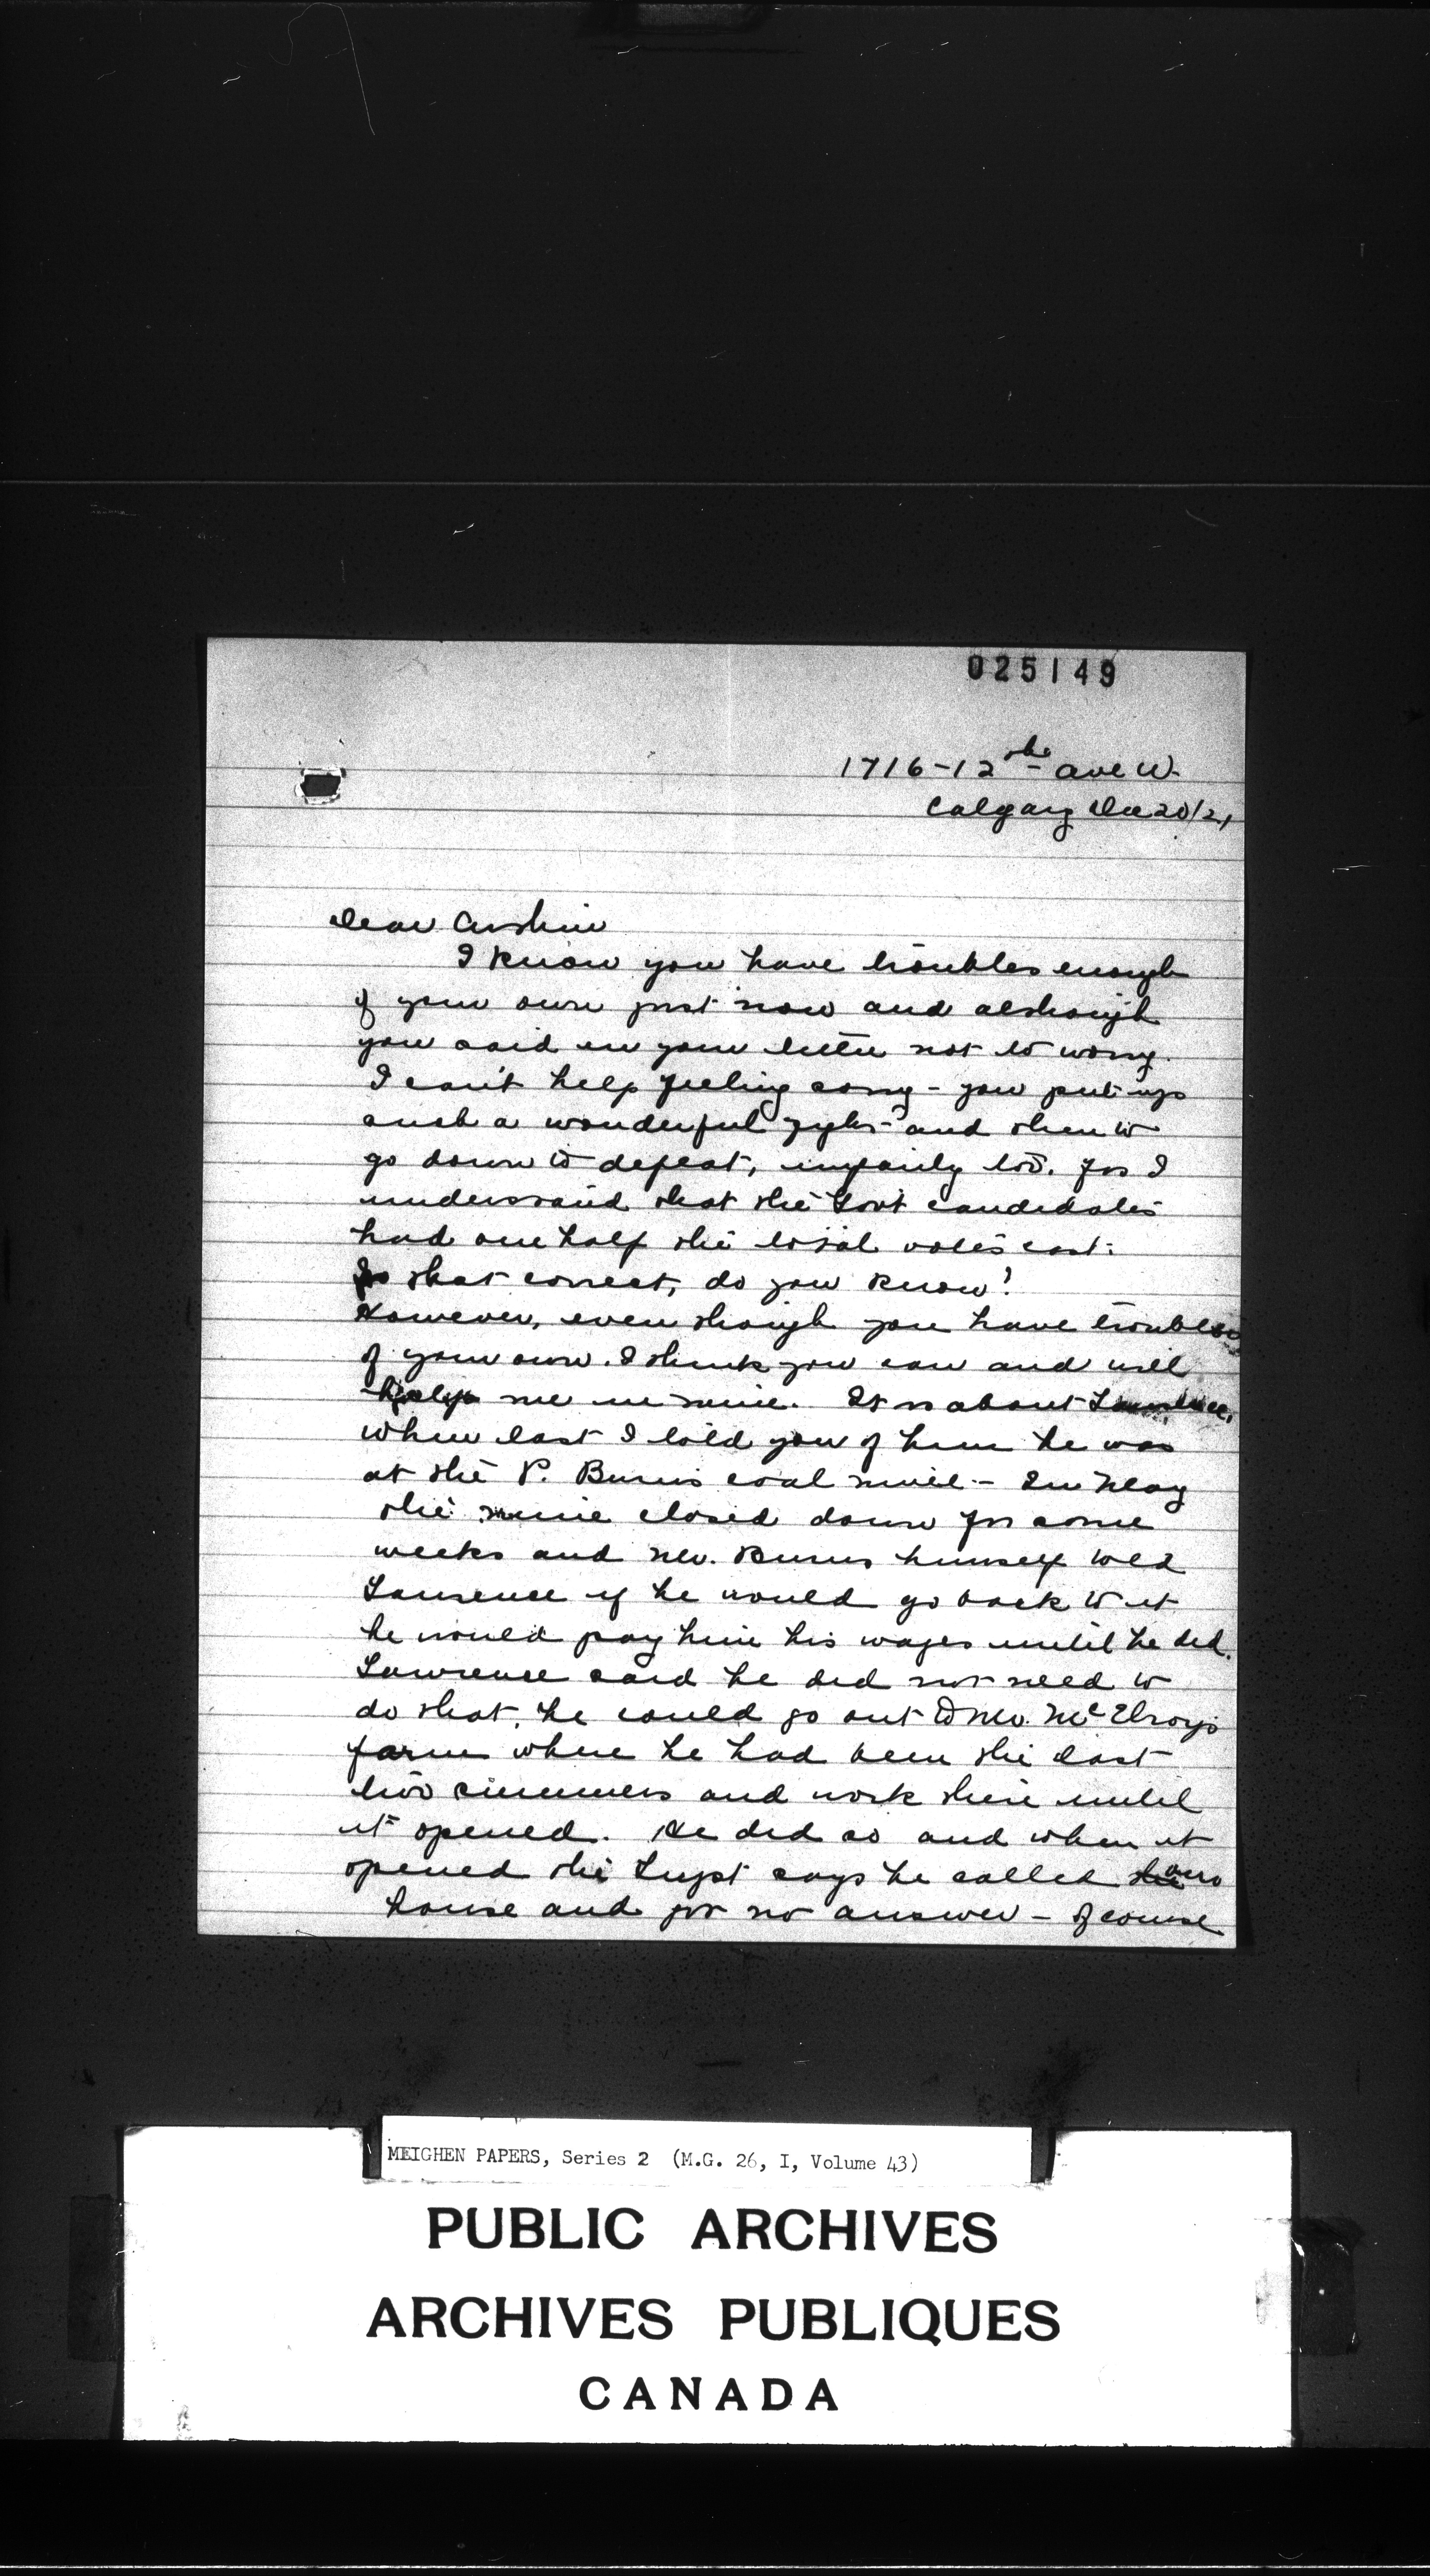 025149
1716-12th ave W.
Calgary Dec 20/21
Dear Cousin
I know you have troubles enough
of your own just now and although
you said in your letter not to worry.
I can't help feeling sorry - you put up
such a wonderful fight and then to
go down to defeat, unfairly too. for I
understand that the Govt candidates
had one half the total votes cast.
Is that correct, do you know?
However, even though you have troubles
of your own. I think you can and will
help me in mine. It is about Lawrence,
when last I told you of him he was
at the P. Burns coal mine - In May
the mine closed down for some
weeks and Mr. Burns himself told
Lawrence if he would go back to it
he would pay him his wages until he did.
Lawrence said he did not need to
do that, he could go out to Mr. McElroy's
farm where he had been the last
two summers and work there until
it opened. He did so and when it
opened the Supt says he called our
house and got no answer - of course
MEIGHEN PAPERS, Series 2 (M.G. 26, I, Volume 43)
PUBLIC ARCHIVES
ARCHIVES PUBLIQUES
CANADA